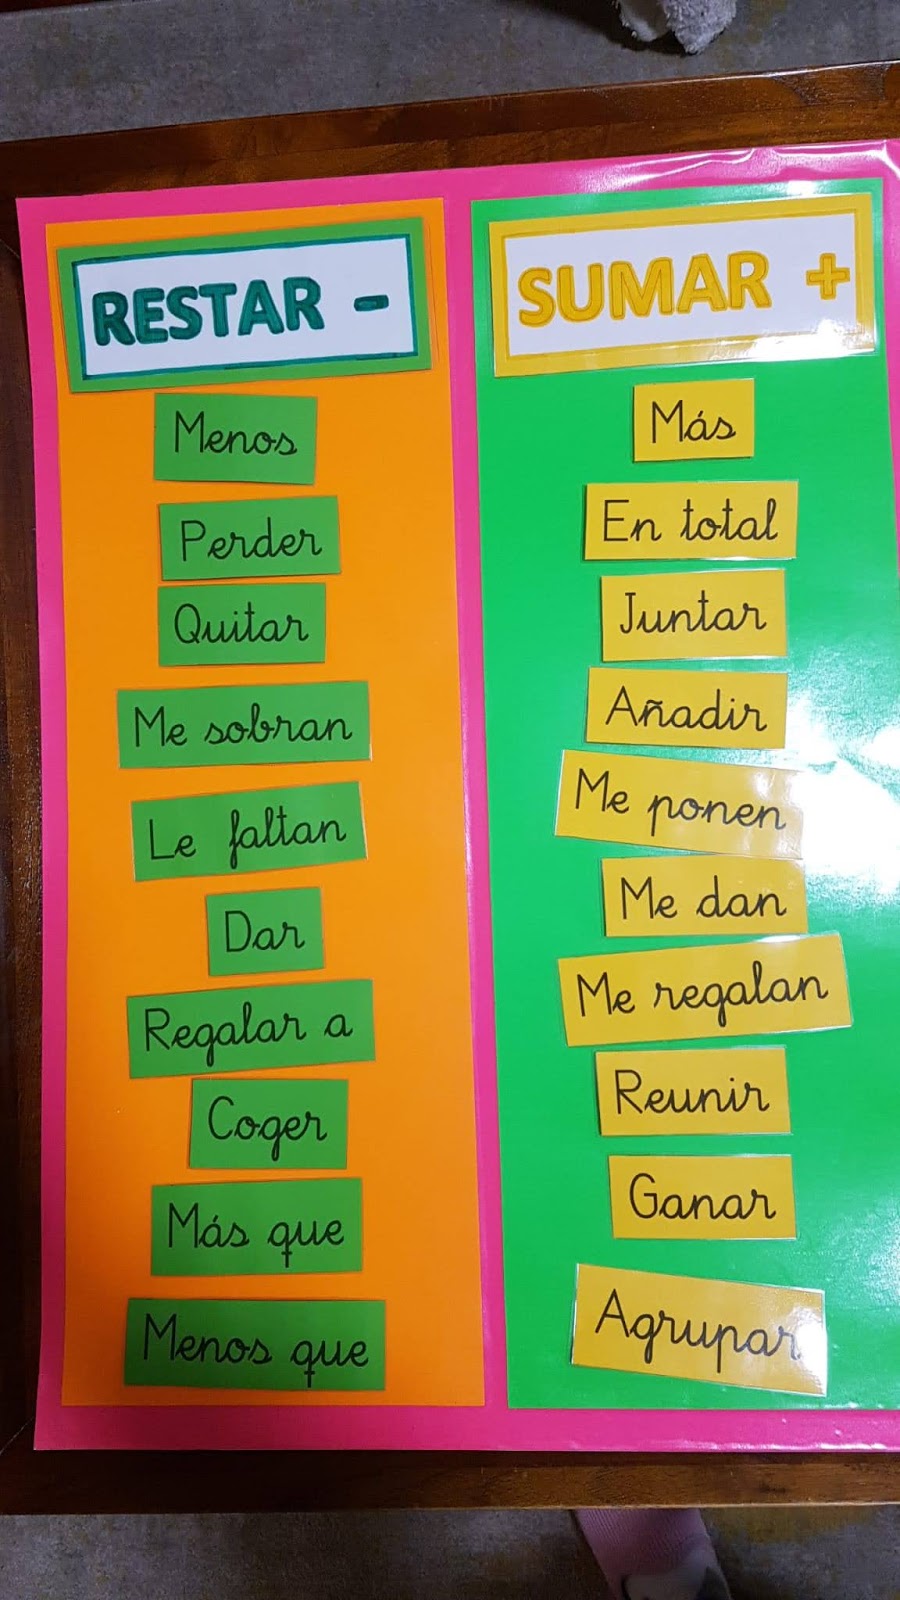 RESTAR -
Menos
Perder
Quitar
Me sobran
Le faltan
Dar
Regalar a
Coger
Más que
Menos que
SUMAR +
Más
En total
Juntar
Añadir
Me ponen
Me dan
Me regalan
Reunir
Ganar
Agrupar